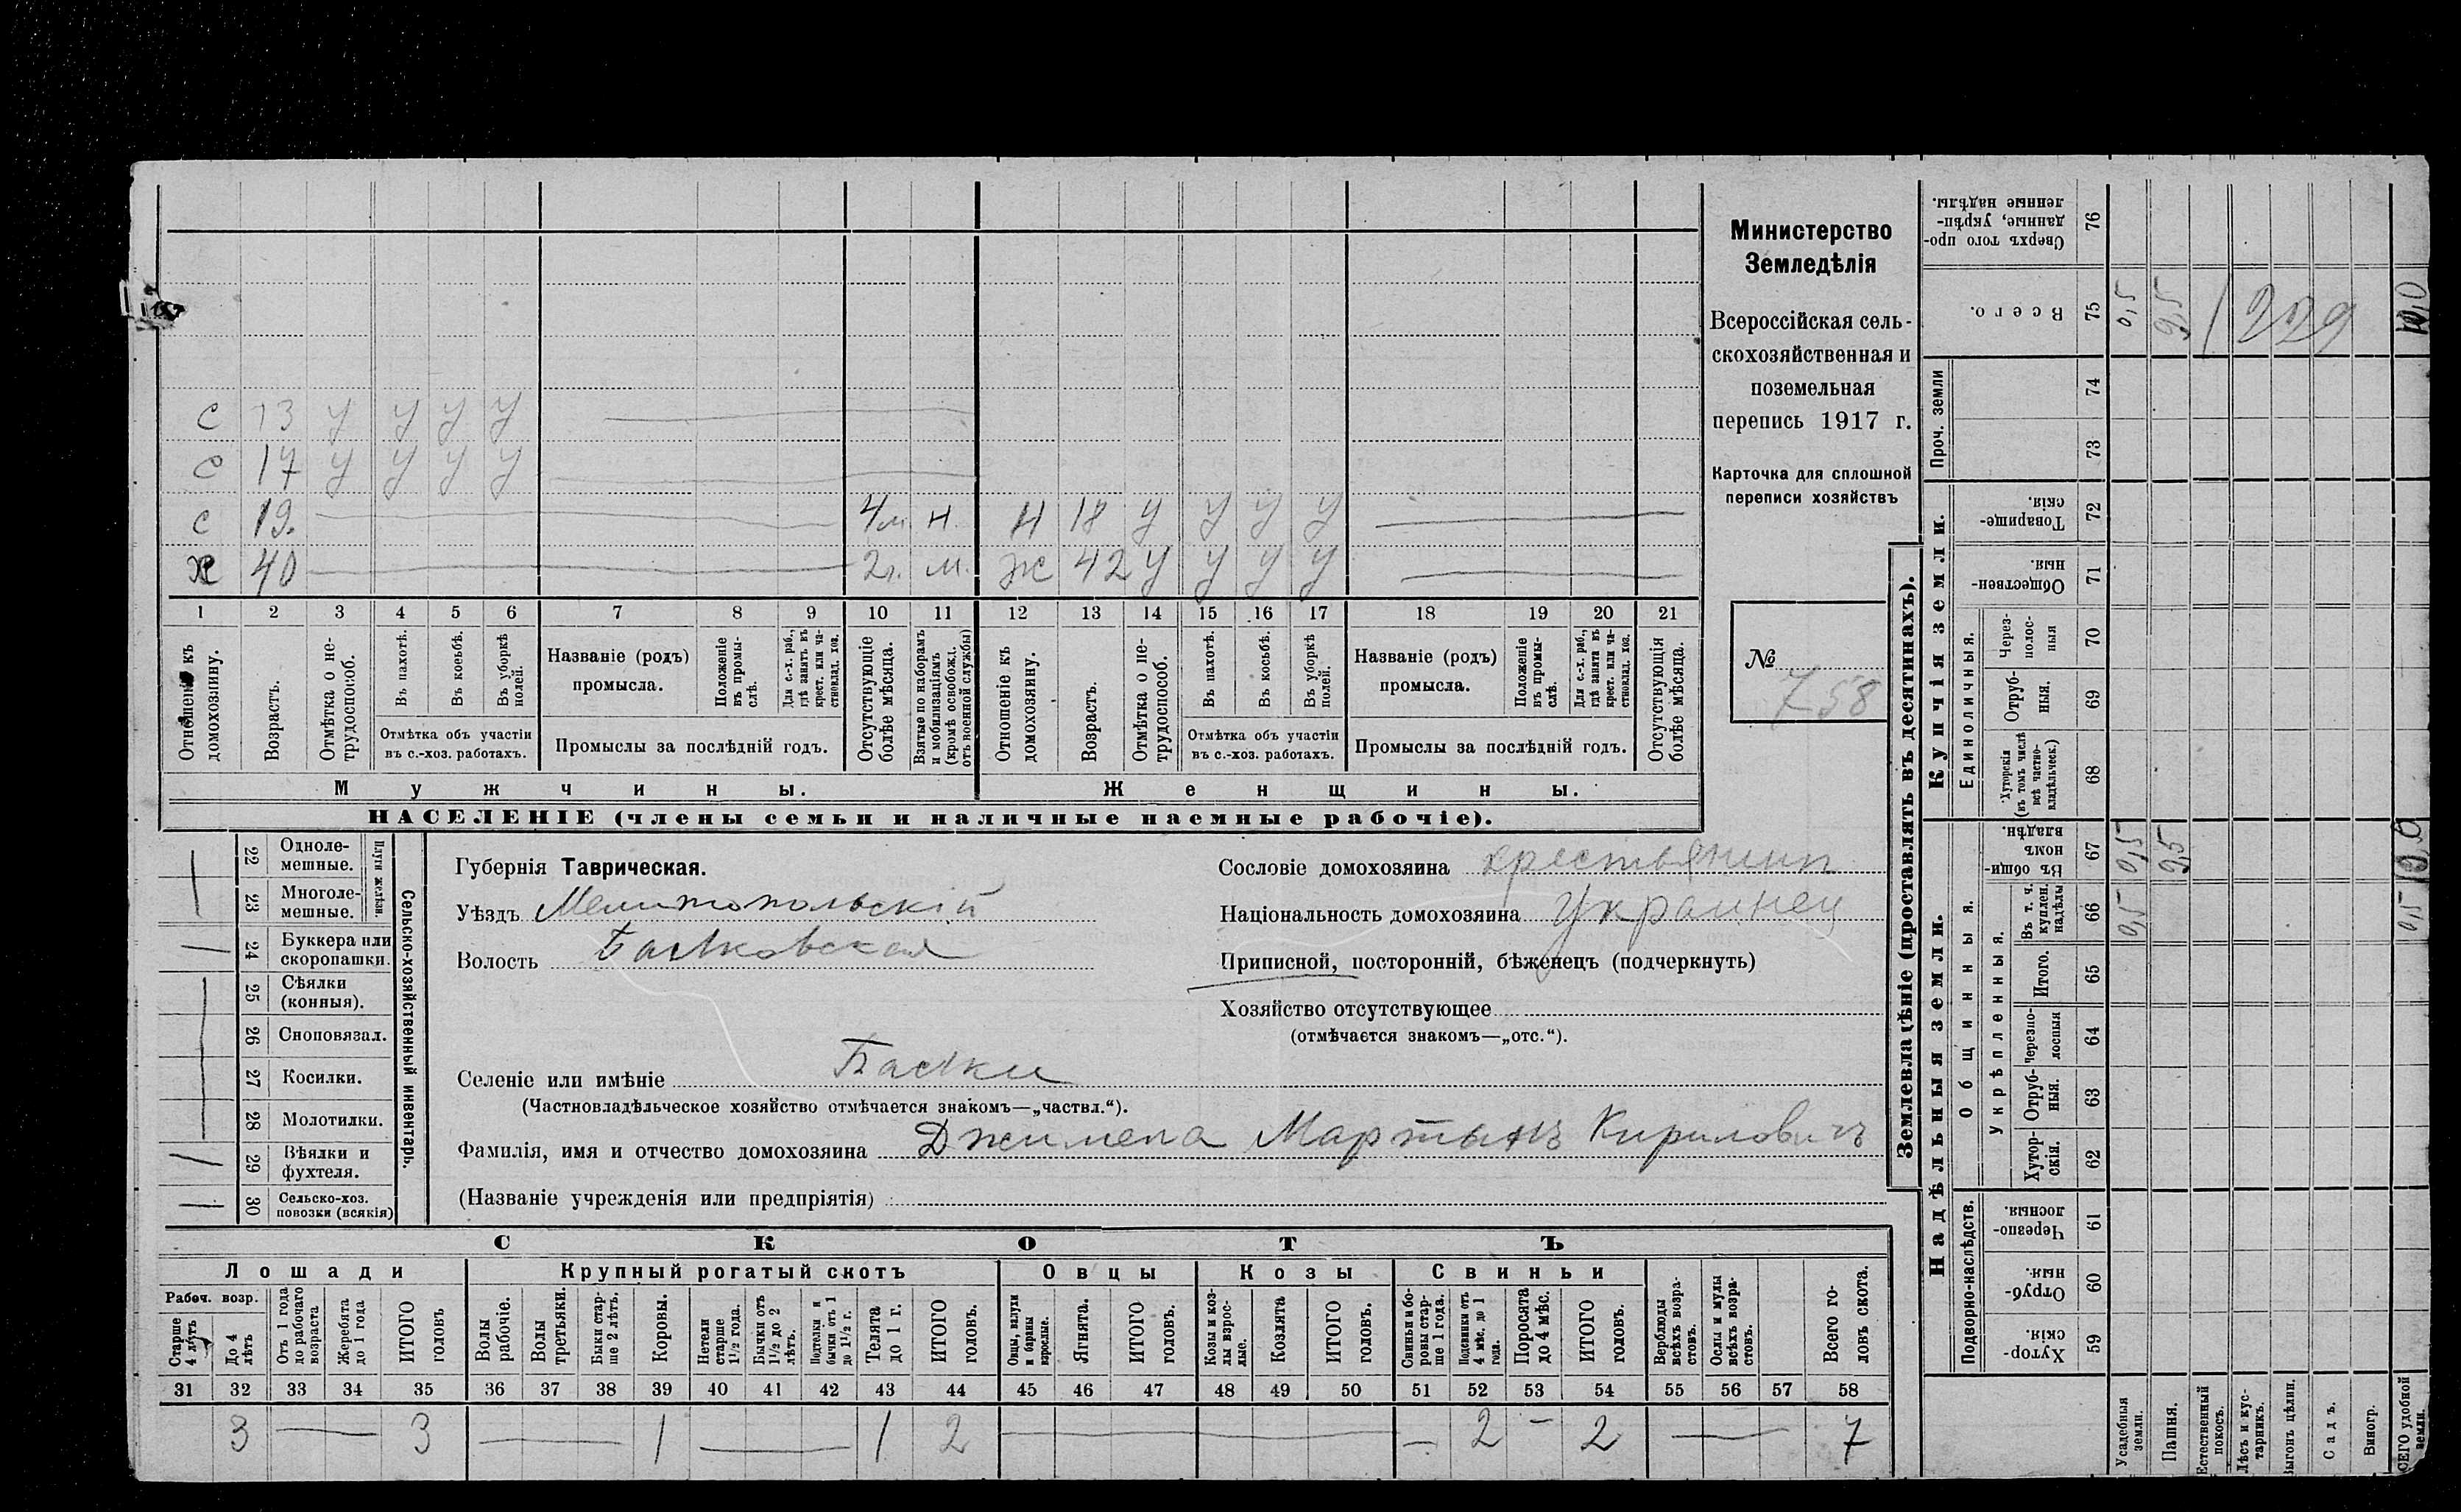 Министерство
Земледѣлія
Всероссійская сель-
скохозяйственная и
поземельная
перепись 1917 г.
Карточка для сплошной
переписи хозяйствъ
№ 758
с 13 у у у у
с 17 у у у у
с 19. 4м. н. Н 18 у у у у
х 40 2г. м. ж 42 у у у у
1 2 3 4 5 6 7 8 9 10 11 12 13 14 15 16 17 18 19 20 21
Отношеніе къ домохозяину.
Возрастъ.
Отмѣтка о не-трудоспособ.
Въ пахотѣ.
Въ косьбѣ.
Въ уборкѣ полей.
Отмѣтка объ участіи
въ с.-хоз. работахъ.
Названіе (родъ)
промысла.
Положеніе въ промы-слѣ.
Для с.-х. раб., гдѣ занятъ въ крест. или ча-стновлад. хоз.
Промыслы за послѣдній годъ.
Отсутствующіе болѣе мѣсяца.
Взятые по наборамъ и мобилизаціямъ (кромѣ освобожд. отъ военной службы)
Отношеніе къ домохозяину.
Возрастъ.
Отмѣтка о не-трудоспособ.
Въ пахотѣ.
Въ косьбѣ.
Въ уборкѣ полей.
Отмѣтка объ участіи
въ с.-хоз. работахъ.
Названіе (родъ)
промысла.
Положеніе въ промы-слѣ.
Для с.-х. раб., гдѣ занята въ крест. или ча-стновлад. хоз.
Промыслы за послѣдній годъ.
Отсутствующія болѣе мѣсяца.
Мужчины. Женщины.
НАСЕЛЕНІЕ (члены семьи и наличные наемные рабочіе).
22 Одноле-мешные.
23 Многоле-мешные.
Плуги желѣзн.
24 Буккера или скоропашки.
25 Сѣялки (конныя).
26 Сноповязал.
27 Косилки.
28 Молотилки.
29 Вѣялки и фухтеля.
30 Сельско-хоз. повозки (всякія)
Сельско-хозяйственный инвентарь.
Губернія Таврическая.
Уѣздъ Мелитопольскій
Волость Балковская
Селеніе или имѣніе Балки
(Частновладѣльческое хозяйство отмѣчается знакомъ—„частвл.“).
Фамилія, имя и отчество домохозяина Мартынъ Кириловичъ
(Названіе учрежденія или предпріятія)
Сословіе домохозяина крестьянинъ
Національность домохозяина Украинец
Приписной, посторонній, бѣженецъ (подчеркнуть)
Хозяйство отсутствующее
(отмѣчается знакомъ—„отс.“).
СКОТЪ
Лошади Крупный рогатый скотъ Овцы Козы Свиньи
Рабоч. возр.
Старше 4 лѣтъ
До 4 лѣтъ
Отъ 1 года до рабочаго возраста
Жеребята до 1 года
ИТОГО головъ
Волы рабочіе.
Волы третьяки.
Быки стар-ше 2 лѣтъ.
Коровы.
Нетели старше 1½ года.
Бычки отъ 1½ до 2 лѣтъ.
Подтелки и бычки отъ 1 до 1½ г.
Телята до 1 г.
ИТОГО головъ.
Овцы, валухи и бараны взрослые.
Ягнята.
ИТОГО головъ.
Козы и коз-лы взрос-лые.
Козлята
ИТОГО головъ.
Свиньи и бо-ровы стар-ше 1 года.
Подсвинки отъ 4 мѣс. до 1 года.
Поросята до 4 мѣс.
ИТОГО головъ.
Верблюды всѣхъ возра-стовъ.
Ослы и мулы всѣхъ возра-стовъ.
Всего го-ловъ скота.
31 32 33 34 35 36 37 38 39 40 41 42 43 44 45 46 47 48 49 50 51 52 53 54 55 56 57 58
3 3 1 1 2 2 2 7
Землевладѣніе (проставлять въ десятинахъ).
Надѣльныя земли. Купчія земли. Проч. земли
Подворно-наслѣдств.
Общинныя.
Укрѣпленныя.
Единоличныя.
59 Хутор-скія.
60 Отруб-ныя.
61 Черезпо-лосныя.
62 Хутор-скія.
63 Отруб-ныя.
64 Черезпо-лосныя
65 Итого.
66 Въ т. ч. куплен. надѣлы
67 Въ общин-номъ владѣн.
68 Хуторскія (въ томъ числѣ всѣ частно-владѣльческ.)
69 Отруб-ныя.
70 Через-полос-ныя
71 Обществен-ныя.
72 Товарище-скія.
73
74
75 Всего.
76 Сверхъ того про-данные, укрѣп-ленные надѣлы.
Усадебныя земли. 0,5 0,5 0,5
Пашня. 9,5 9,5
Естественный покосъ.
Лѣсъ и кус-тарникъ.
Выгонъ цѣлин.
Садъ.
Виногр.
ВСЕГО удобной земли. 0,5 10,0 10,0